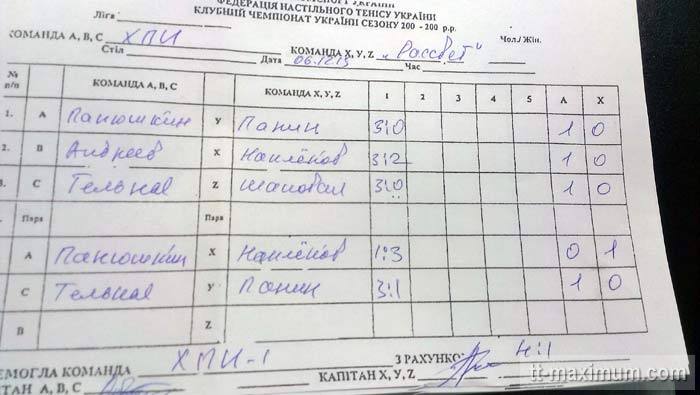 ФЕДЕРАЦІЯ НАСТІЛЬНОГО ТЕНІСУ УКРАЇНИ
КЛУБНИЙ ЧЕМПІОНАТ УКРАЇНИ СЕЗОНУ 200 - 200 р.р.
Ліга
Чол./ Жін.
КОМАНДА А, В, С ХПИ КОМАНДА X, Y, Z „Рассвет"
Стіл Дата 06.12.15 Час
№ п/п КОМАНДА А, В, С КОМАНДА X, Y, Z 1 2 3 4 5 А X
1. А Панюшкин У Панин 3:0 1 0
2. В Андреев X Наилёков 3:2 1 0
3. С Тельная Z Шаповал 3:0 1 0
Пара Пара
А Панюшкин X Наилёков 1:3 0 1
С Тельная У Панин 3:1 1 0
В Z
ПЕРЕМОГЛА КОМАНДА ХПИ-1 З РАХУНКОМ 4:1
КАПІТАН А, В, С КАПІТАН X, Y, Z
tt-maximum.com